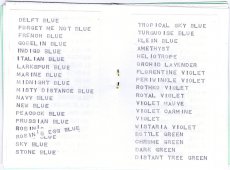 DELFT BLUE
FORGET ME NOT BLUE
FRENCH BLUE
GOBELIN BLUE
INDIGO BLUE
ITALIAN BLUE
LARKSPUR BLUE
MARINE BLUE
MIDNIGHT BLUE
MISTY DISTANCE BLUE
NAVY BLUE
NEW BLUE
PEACOCK BLUE
PRUSSIAN BLUE
ROBIN'S EGG BLUE
SKY BLUE
STONE BLUE
TROPICAL SKY BLUE
TURQUOISE BLUE
KLEIN BLUE
AMETHYST
HELIOTROPE
ORCHID LAVENDER
FLORENTINE VIOLET
PERIVINKLE VIOLET
ROTHKO VIOLET
ROYAL VIOLET
VIOLET MAUVE
VIOLET CARMINE
VIOLET
WISTARIA VIOLET
BOTTLE GREEN
CHROME GREEN
DARK GREEN
DISTANT TREE GREEN